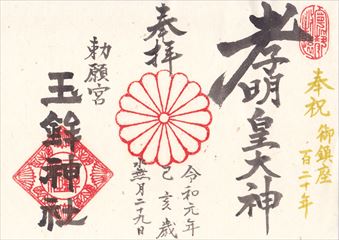 奉祝 御鎮座
百二十年
孝明皇大神
奉拝
令和元年
己亥歳
無月二十九日
勅願宮
玉鉾神社